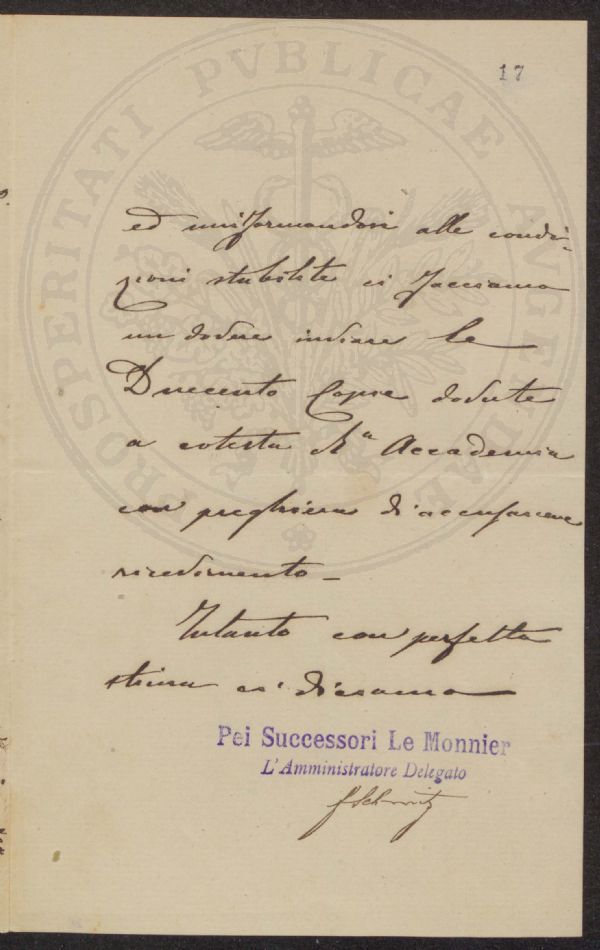 17
PROSPERITATI PVBLICAE AVGENDAE
ed uniformandosi alle condi-
zioni stabilite ci facciamo
un dovere inviare le
Duecento Copie dovute
a cotesta Rª Accademia
con preghiera di accusarcene
ricevimento -
Intanto con perfetta
stima ci diciamo
Pei Successori Le Monnier
L'Amministratore Delegato